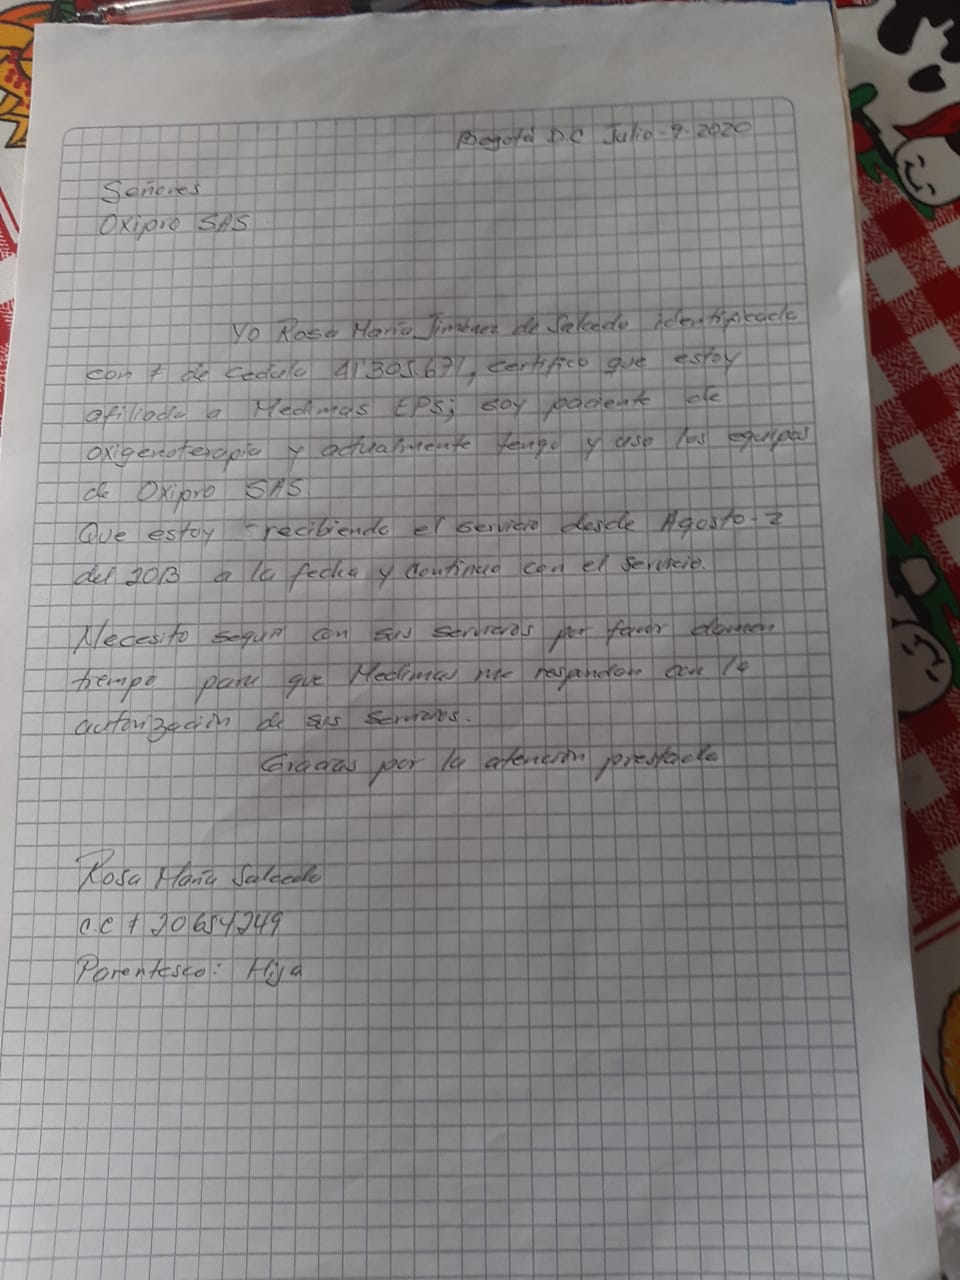 Bogotá D.C Julio-9-2020
Señores
Oxipro SAS
Yo Rosa María Jiménez de Salcedo identificada
con # de cedula 41'305.671, certifico que estoy
afiliada a Medimas EPS; soy paciente de
oxigenoterapia y actualmente tengo y uso los equipos
de Oxipro SAS.
Que estoy recibiendo el servicio desde Agosto-2
del 2013 a la fecha y continuo con el servicio.
Necesito seguir con sus servicios por favor denmen
tiempo para que Medimas me respondan con la
autorización de sus servicios.
Gracias por la atención prestada
Rosa María Salcedo
c.c # 20654249
Parentesco: Hija